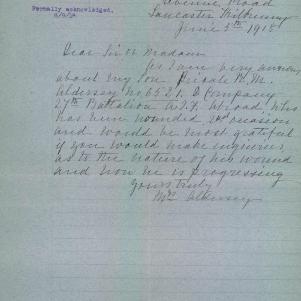 Avenue Road
Formally acknowledged.
Lancaster Kilkenny
June 3rd 1918
Dear Sir or Madam
As I am very anxious
about my son Private R. M.
Aldersey no 6521. D Company
27th Battalion A.I.F. abroad who
has been wounded 2nd occasion
and would be most grateful
if you would make enquiries
as to the nature of his wound
and how he is progressing
Yours truly
Mrs Aldersey